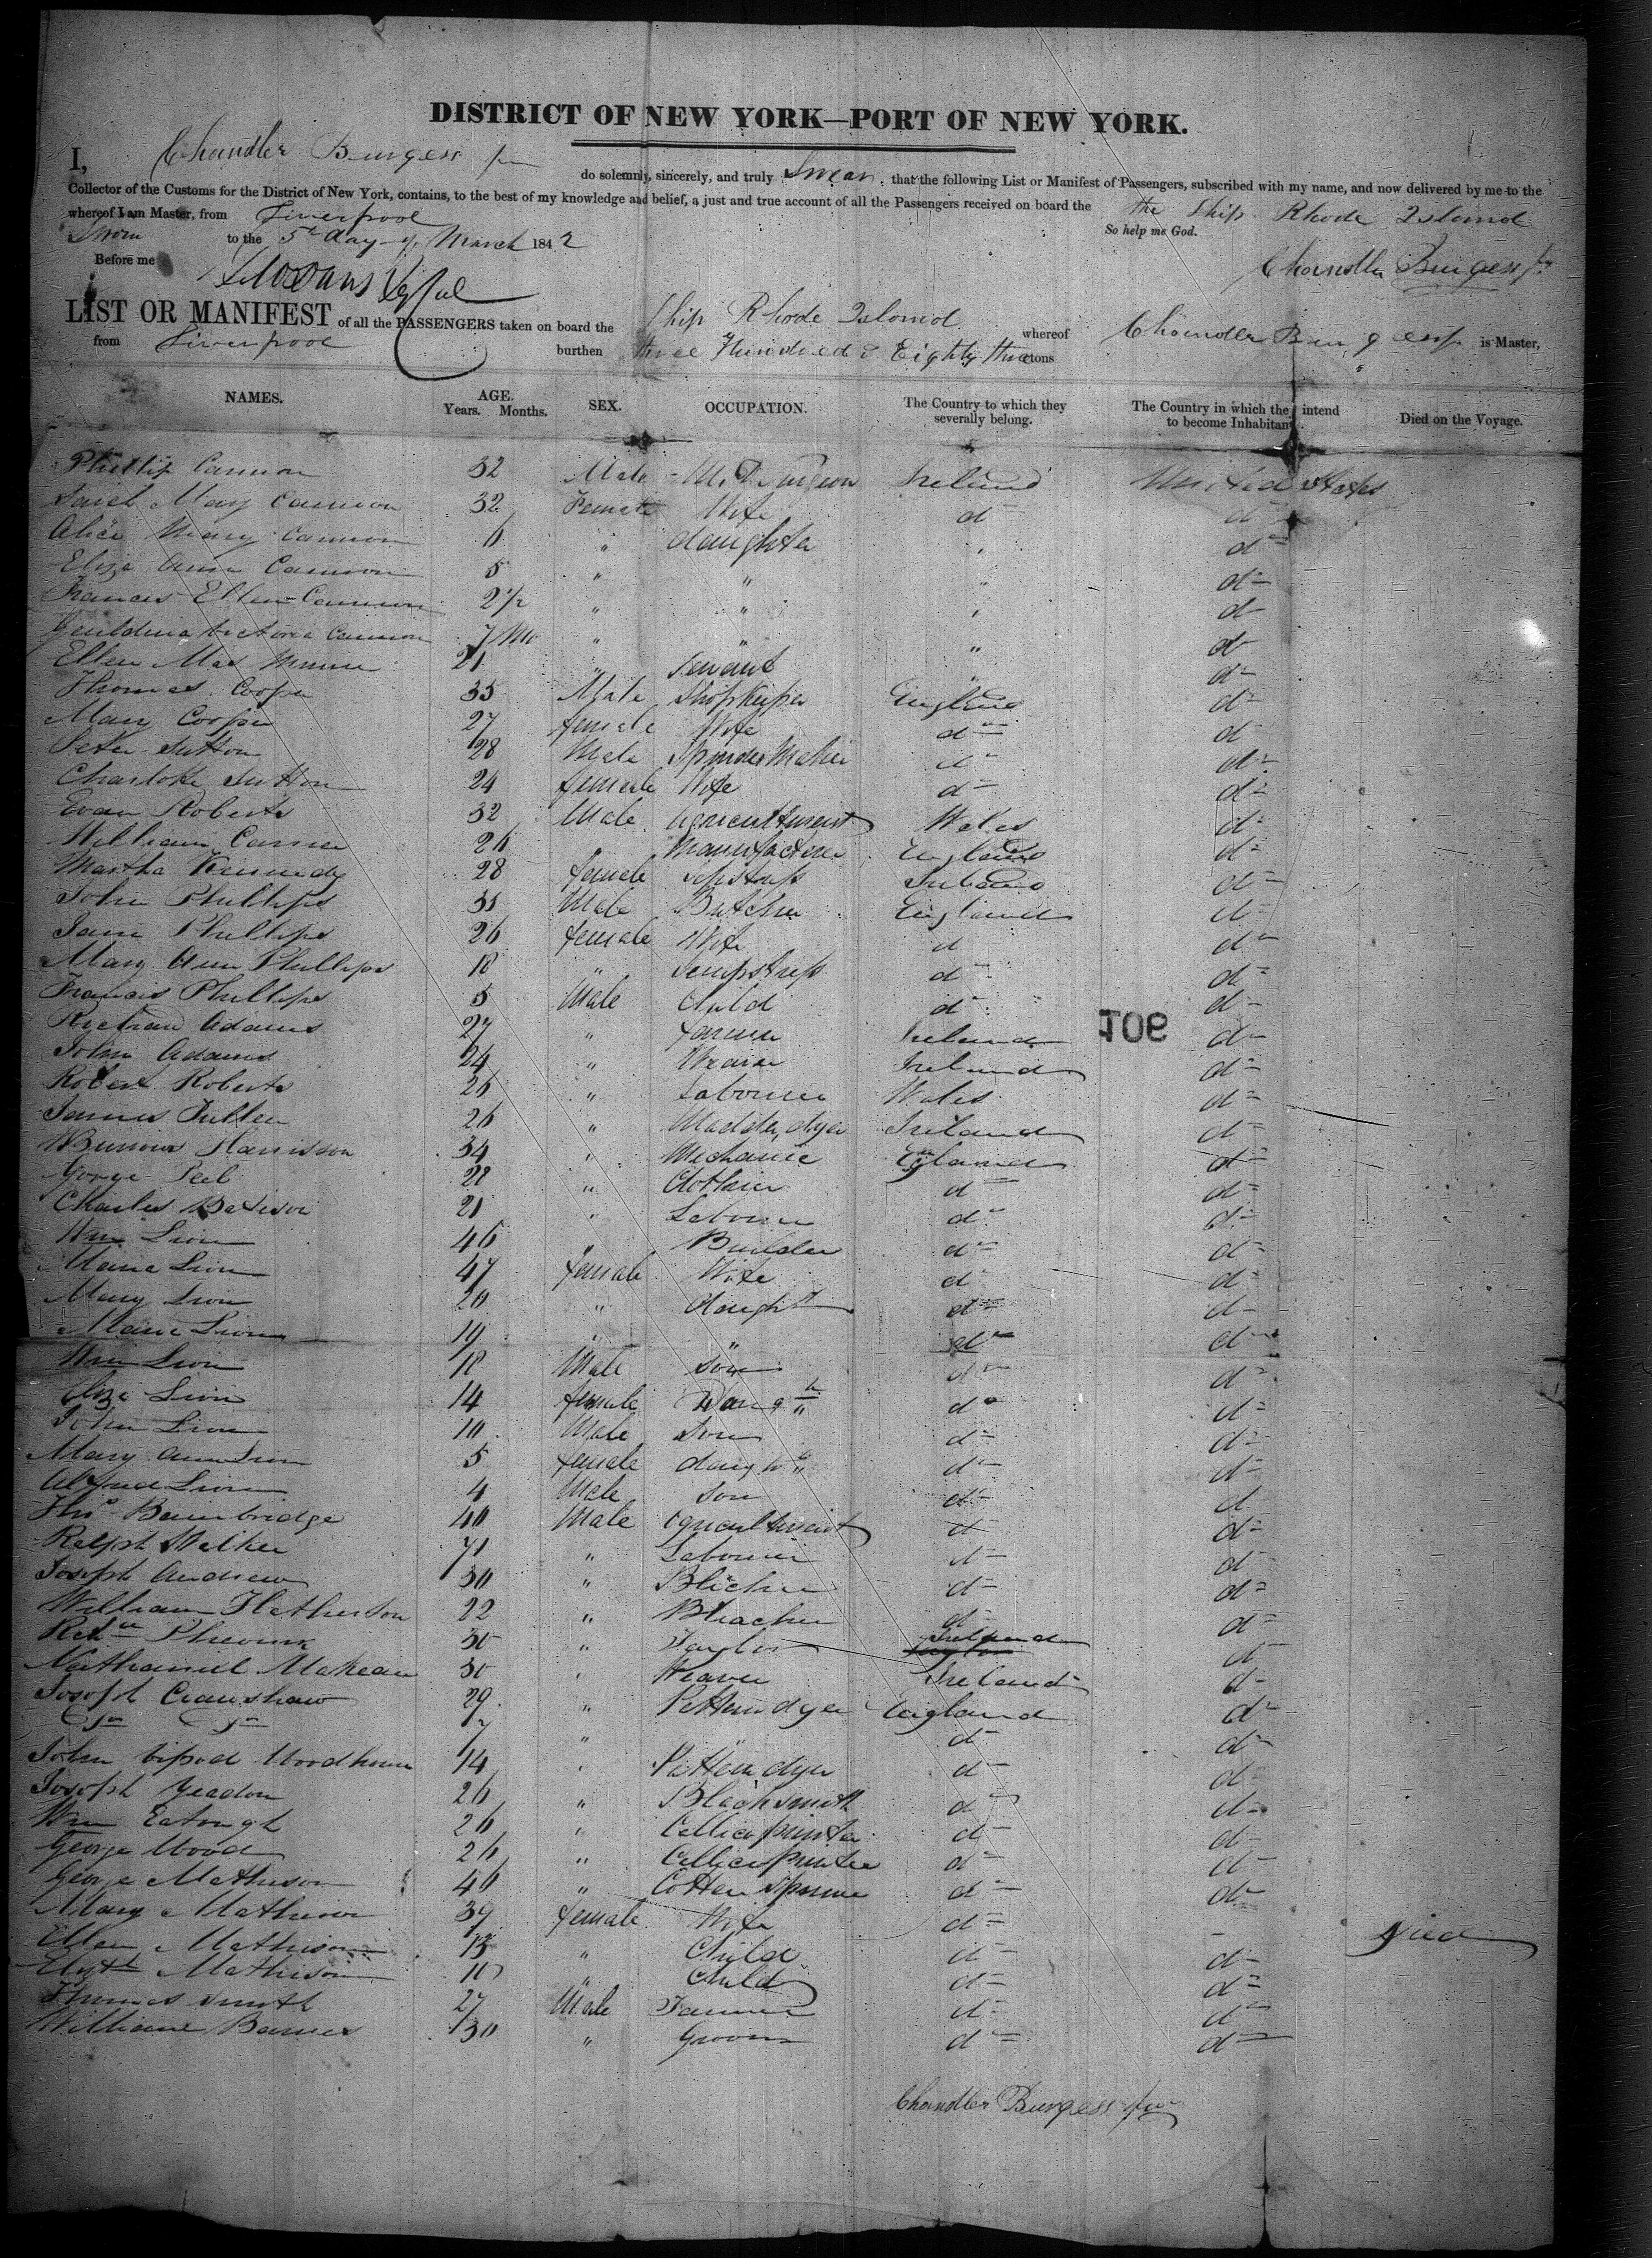 DISTRICT OF NEW YORK—PORT OF NEW YORK.
I, Chandler Burgess Jun do solemnly, sincerely, and truly Swear that the following List or Manifest of Passengers, subscribed with my name, and now delivered by me to the
Collector of the Customs for the District of New York, contains, to the best of my knowledge and belief, a just and true account of all the Passengers received on board the the Ship Rhode Island
whereof I am Master, from Liverpool So help me God.
Sworn to the 5th day of March 1842
Before me
Chandler Burgess Jr
LIST OR MANIFEST of all the PASSENGERS taken on board the Ship Rhode Island whereof Chandler Burgess is Master,
from Liverpool burthen three Hundred & Eighty three tons
NAMES. AGE. Years. Months. SEX. OCCUPATION. The Country to which they severally belong. The Country in which they intend to become Inhabitants. Died on the Voyage.
Phillip Cannon 32 Male Surgeon Ireland United States
Mary Cannon 32 Female Wife d d
Alice Mary Cannon 6 " daughter " d
Eliza Ann Cannon 5 " " " d
Frances Ellen Cannon 2 1/2 " " " d
Victoria Cannon 7 Mo " " " d
Ellen 21 " Servant " d
Thomas Cooper 35 Male Shopkeeper England d
Mary Cooper 27 female Wife d d
Peter Sutton 28 Male Spindel Maker d d
Charlotte Sutton 24 female Wife d d
Evan Roberts 32 Male Agriculturist Wales d
William 26 Manufacturer England d
Martha Kennedy 28 female Ireland d
John Phillips 35 Male Butcher England d
Jane Phillips 26 female Wife d d
Mary Ann Phillips 18 " Sempstress d d
Francis Phillips 5 Male Child d d
Adams 27 " farmer Ireland d
John Adams 24 " Weaver Ireland d
Robert Roberts 26 " Labourer Wales d
James Fullen 26 " Madder dyer Ireland d
Harrisson 34 " Mechanic England d
George Peel 28 " Clothier d d
Charles 21 " Labourer d d
Wm Lion 46 " Builder d d
Maria Lion 47 female Wife d d
Mary Lion 20 " daught d d
Maria Lion 19 " " d d
Wm Lion 18 Male Son d d
Eliza Lion 14 female Daugh d d
John Lion 10 Male Son d d
Mary Ann Lion 5 female daugh d d
Alfred Lion 4 Male Son d d
Thos Bainbridge 40 Male Agriculturist d d
Ralph Walker 71 " Labourer d d
Joseph Andrew 30 " d d
William 22 " Bleacher d d
30 " Taylor Ireland d
Nathaniel Makean 30 " Weaver Ireland d
Joseph Cranshaw 29 " Pattern dyer England d
Do Do 7 " d d
John Woodhouse 14 " Pattern dyer d d
Joseph Yeadon 26 " Blacksmith d d
Wm Eatough 26 " Callico printer d d
George Wood 26 " Callico printer d d
George Mathison 46 " Cotton Spinner d d
Mary Mathison 39 female Wife d - Died
Ellen Mathison 13 " Child d d
Elizth Mathison 10 " Child d d
Thomas Smith 27 Male d d
William Barnes 30 " Groom d d
Chandler Burgess Jun